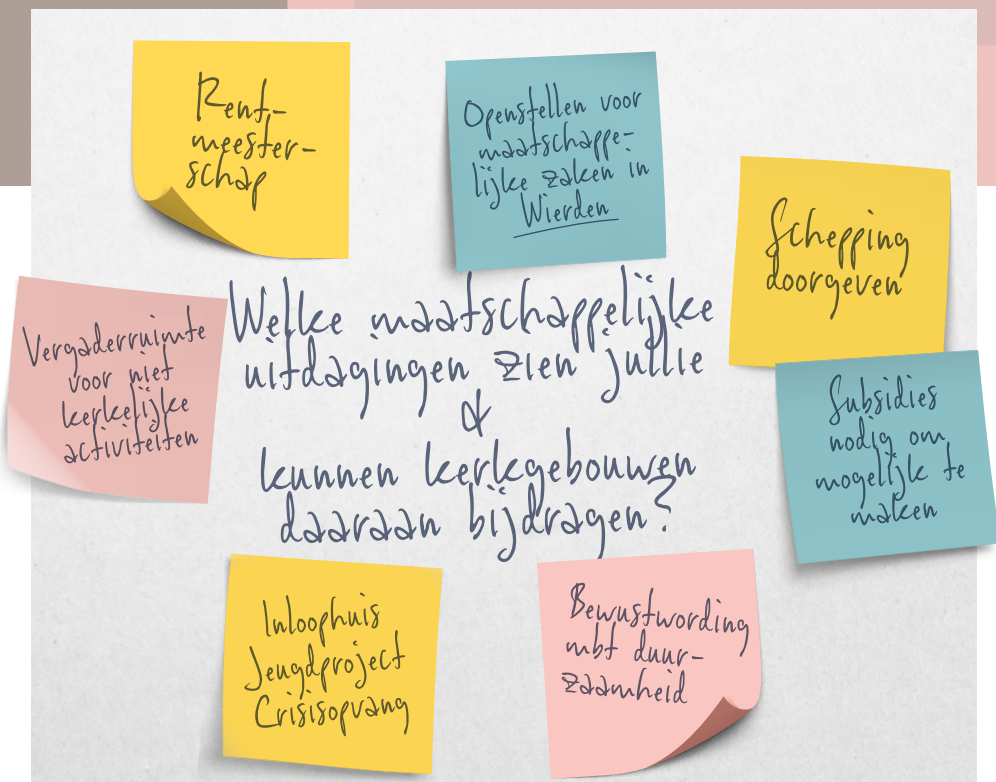 Rent-
meester-
schap
Openstellen voor
maatschappe-
lijke zaken in
Wierden
Schepping
doorgeven
Vergaderruimte
voor niet
kerkelijke
activiteiten
Welke maatschappelijke
uitdagingen zien jullie
&
kunnen kerkgebouwen
daaraan bijdragen?
Subsidies
nodig om
mogelijk te
maken
Inloophuis
Jeugdproject
Crisisopvang
Bewustwording
mbt duur-
zaamheid